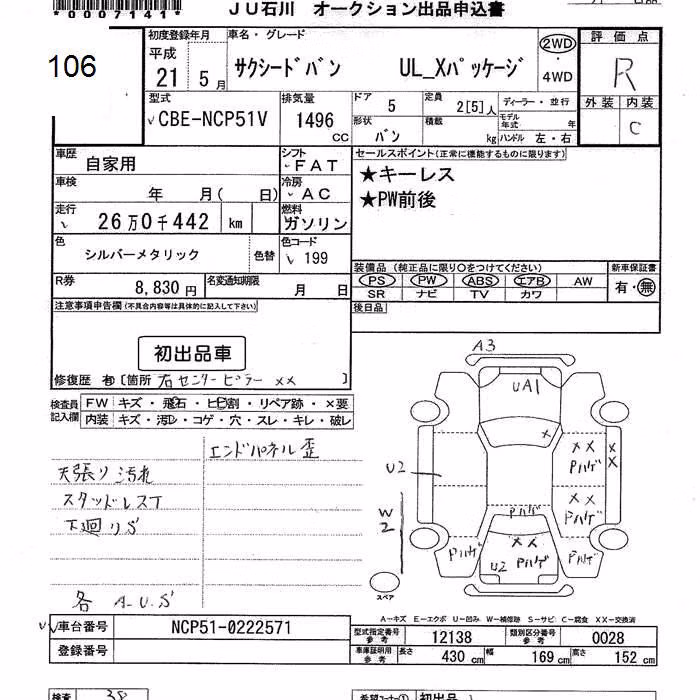 *0007141*
JU石川 オークション出品申込書
106
初度登録年月 車名・グレード 評価点
平成 21 5月 サクシードバン UL_Xパッケージ 2WD 4WD R
型式 CBE-NCP51V 排気量 1496 CC ドア 5 定員 2[5]人 ディーラー・並行 外装 内装 C
形状 バン 積載 kg モデル年式 年 ハンドル 左・右
車歴 自家用 シフト FAT セールスポイント(正常に機能するものに限ります)
車検 年 月( 日) 冷房 AC ★キーレス
走行 26万0千442 km 燃料 ガソリン ★PW前後
色 シルバーメタリック 色替 色コード 199
R券 8,830円 名変通知期限 月 日
装備品(純正品に限り○をつけてください) 新車保証書
PS PW ABS エアB AW 有・無
SR ナビ TV カワ
後日品
注意事項申告欄(不具合内容等は具体的に記入して下さい)
初出品車
修復歴 有〔箇所 右センターピラー ××〕
検査員記入欄 FW キズ・飛石・ヒビ割・リペア跡・×要
内装 キズ・汚レ・コゲ・穴・スレ・キレ・破レ
エンドパネル歪
天張り汚れ
スタッドレスT
下廻りS
各 A.U.S
A3
UA1
×
U2
W2
×× Pハゲ
××
×× Pハゲ
Pハゲ
Pハゲ
×× U2 Pハゲ
Pハゲ
スペア
A-キズ E-エクボ U-凹み W-補修跡 S-サビ C-腐食 XX-交換済
車台番号 NCP51-0222571
登録番号
型式指定番号 参考 12138 類別区分番号 参考 0028
車庫証明用 参考 長さ 430cm 幅 169cm 高さ 152cm
検査 38
希望コーナー① 初出品